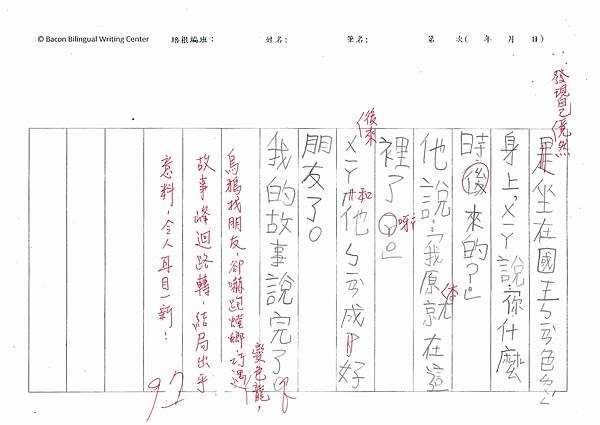 © Bacon Bilingual Writing Center 培根編班： 姓名： 筆名： 第 次( 年 月 日)
發現自己竟然
是坐在國王ㄅㄧㄢ色
身上，ㄨㄚ說：你什麼
時後來的？」
他說：「我原就在這
裡了呀！」
後來
ㄨㄚ和他ㄅㄧㄢ成好
朋友了。
我的故事說完了。
烏鴉找朋友，卻嚇跑螳螂，巧遇變色龍，
故事峰迴路轉，結局出乎
意料，令人耳目一新！
97